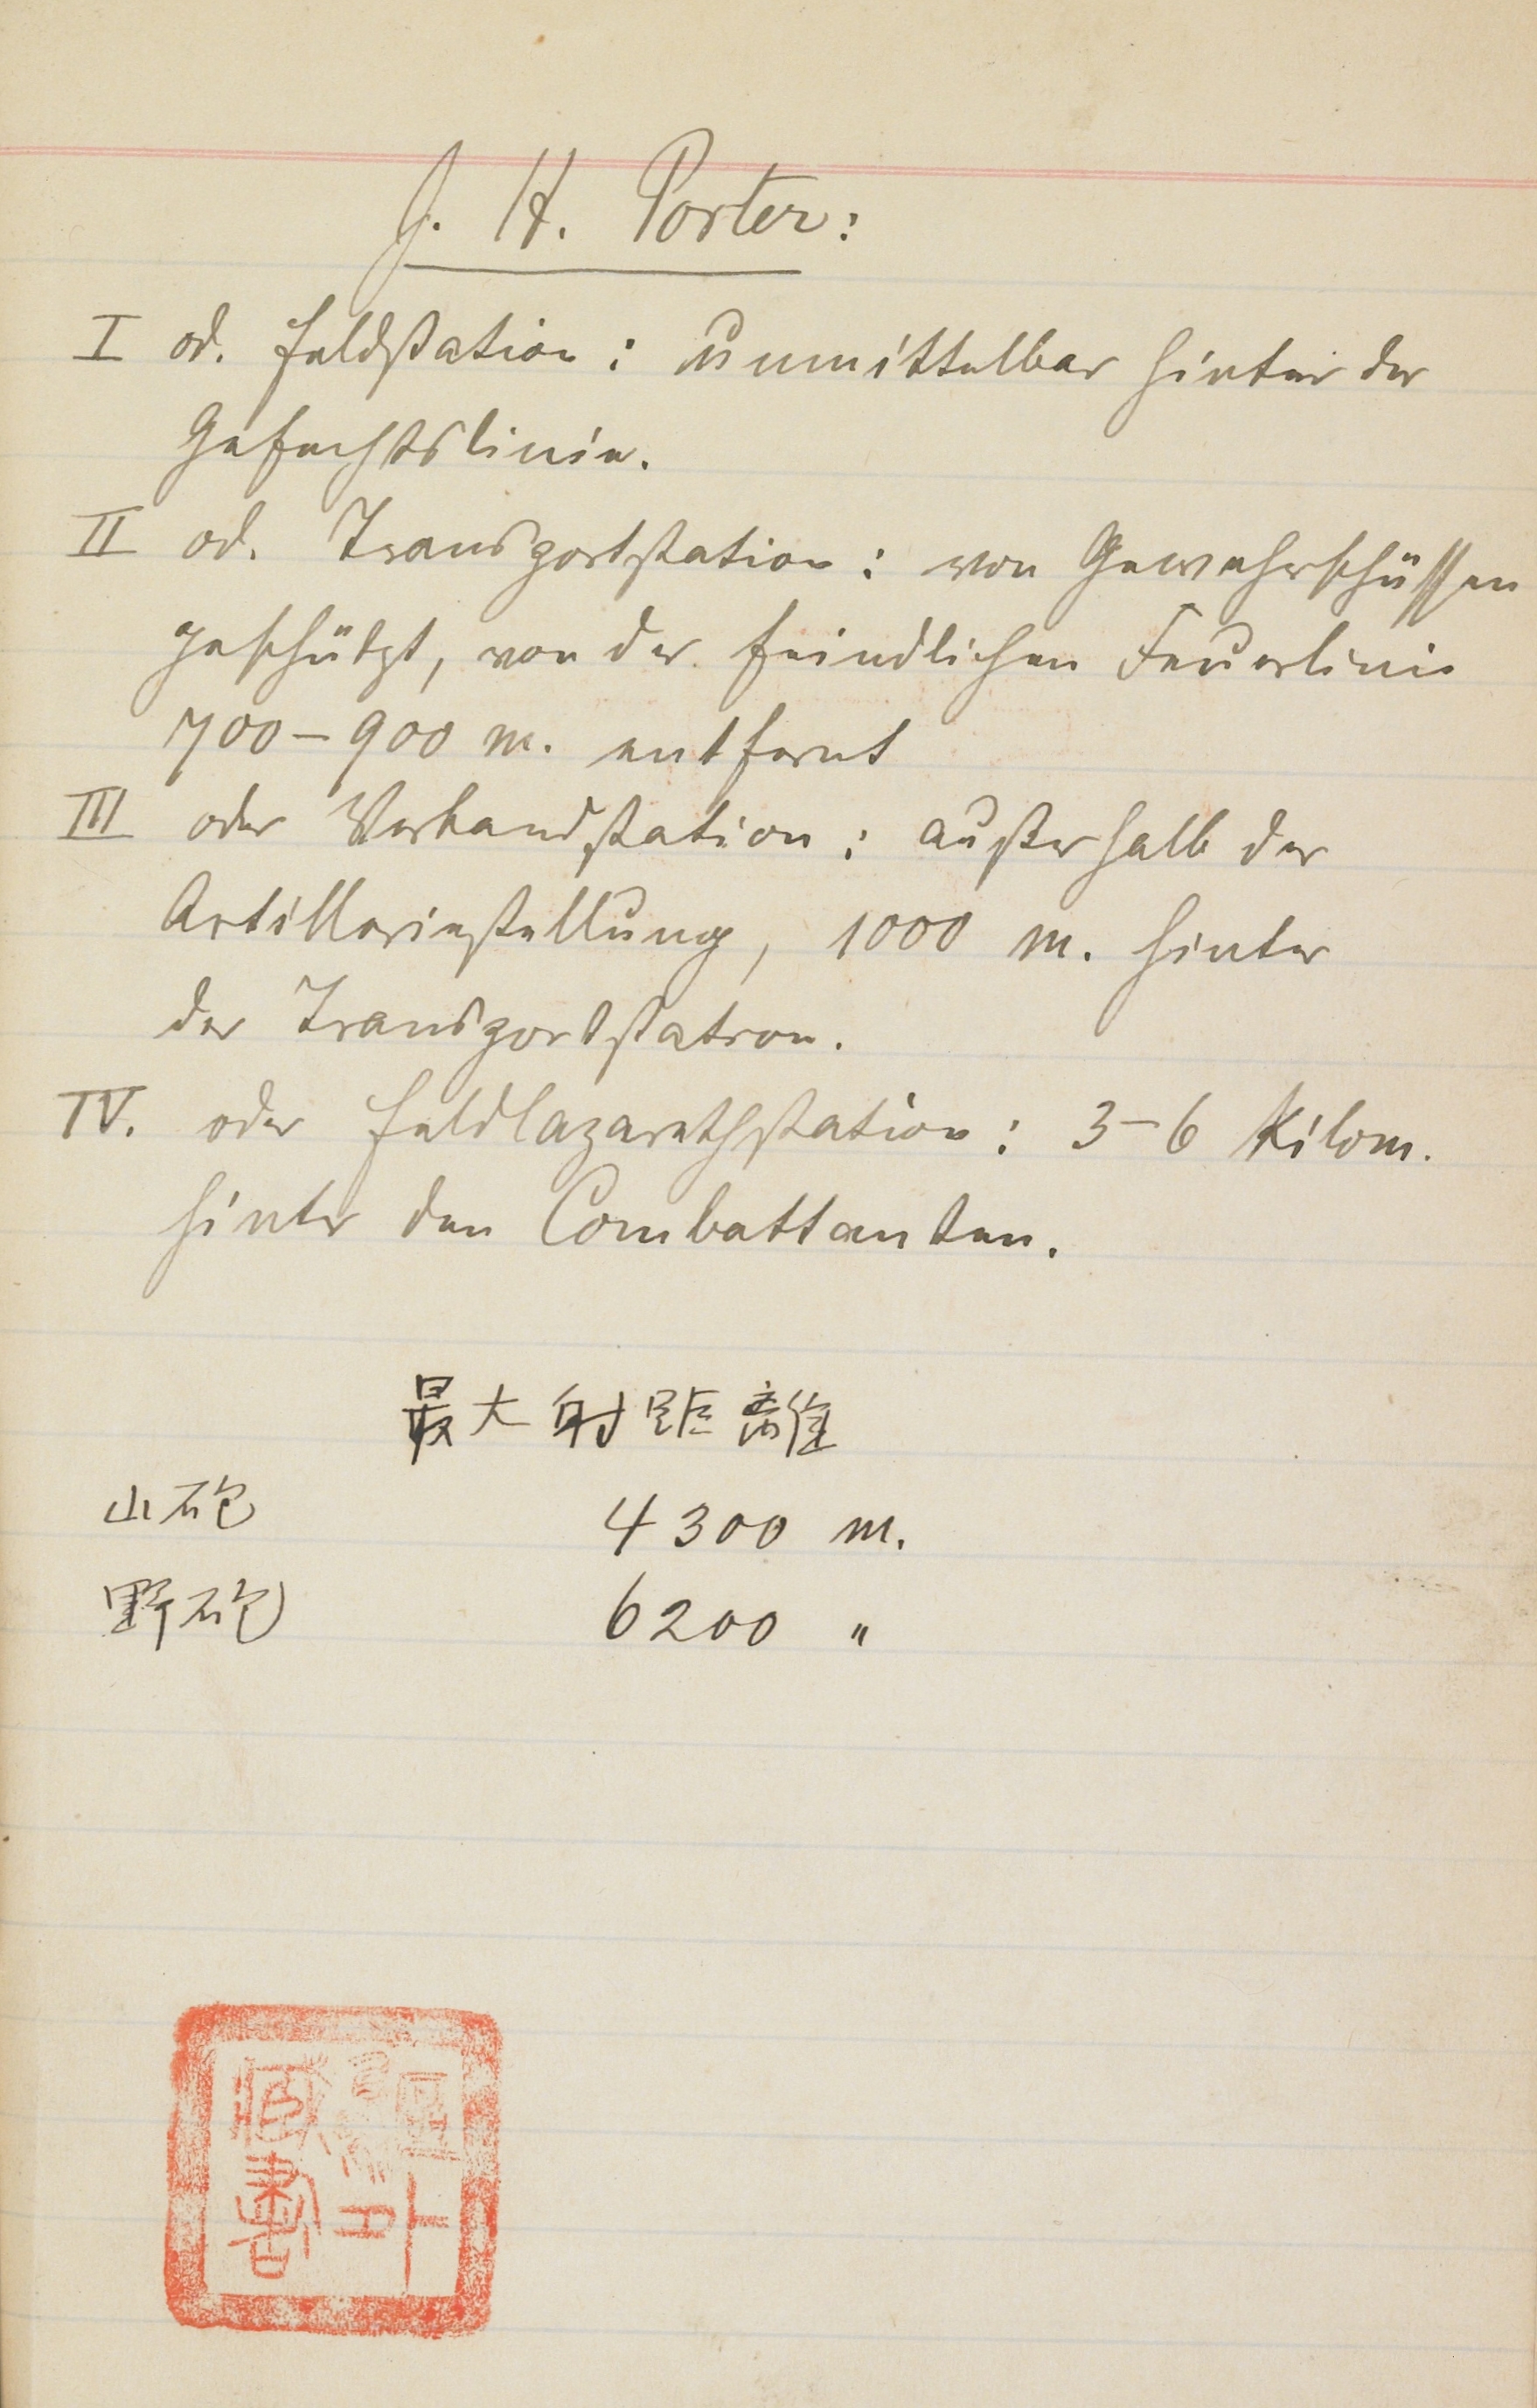 J. H. Porter:
I od. Feldstation: unmittelbar hinter der
Gefechtslinie.
II od. Transportstation: von Gewehrschüssen
geschützt, von der feindlichen Feuerlinie
700–900 m. entfernt
III oder Verbandstation: außerhalb der
Artilleriestellung, 1000 m. hinter
der Transportstation.
IV. oder Feldlazarethstation: 3–6 Kilom.
hinter den Combattanten.
最大射距離
山砲 4300 m.
野砲 6200 〃